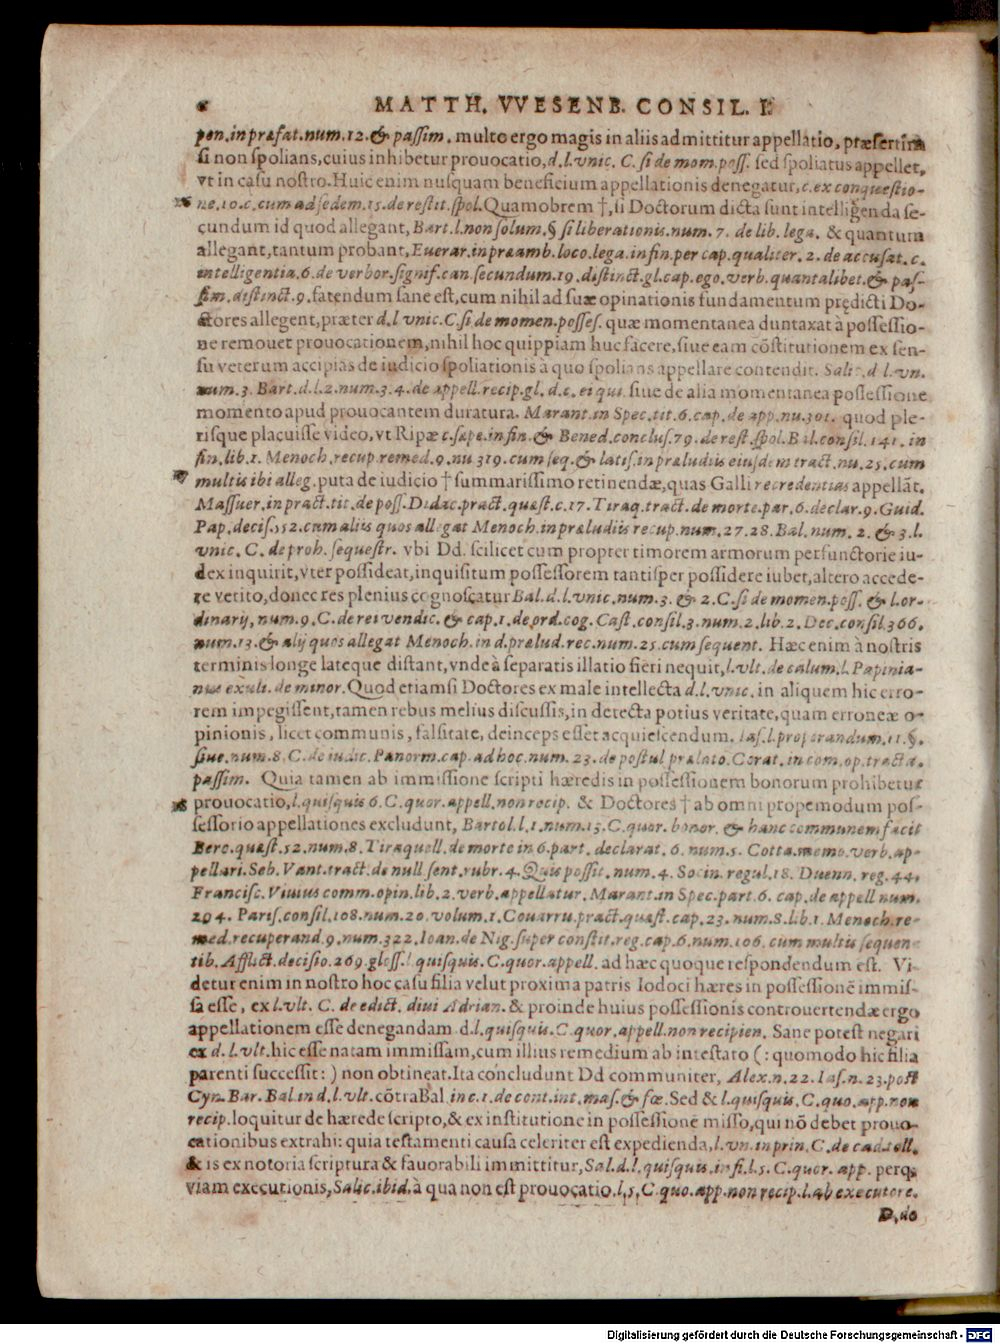 6 MATTH. VVESENB. CONSIL. I.
pen. in præfat. num. 12. & passim. multo ergo magis in aliis admittitur appellatio, præsertim
si non spolians, cuius inhibetur prouocatio, d. l. vnic. C. si de mom. poss. sed spoliatus appellet,
vt in casu nostro. Huic enim nusquam beneficium appellationis denegatur, c. ex conquestio-
16 ne. 10. c. cum ad sedem. 15. de restit. spol. Quamobrem †, si Doctorum dicta sunt intelligenda se-
cundum id quod allegant, Bart. l. non solum. § si liberationis. num. 7. de lib. lega. & quantum
allegant, tantum probant, Euerar. in præamb. loco. lega. in fin. per cap. qualiter. 2. de accusat. c.
intelligentia. 6. de verbor. signif. can. secundum. 19. distinct. gl. cap. ego. verb. quantalibet. & pas-
sim. distinct. 9. fatendum sane est, cum nihil ad suæ opinationis fundamentum prędicti Do-
ctores allegent, præter d. l vnic. C. si de momen. posses. quæ momentanea duntaxat à possessio-
ne remouet prouocationem, nihil hoc quippiam huc facere, siue eam cōstitutionem ex sen-
su veterum accipias de iudicio spoliationis à quo spolians appellare contendit. Salic. d l. vn.
num. 3. Bart. d. l. 2. num. 3. 4. de appell. recip. gl. d. c. ei qui. siue de alia momentanea possessione
momento apud prouocantem duratura. Marant. in Spec. tit. 6. cap. de app. nu. 301. quod ple-
risque placuisse video, vt Ripæ c. sæpe. in fin. & Bened. conclus. 79. de rest. spol. Bal. consil. 141. in
fin. lib. 1. Menoch. recup. remed. 9. nu 319. cum seq. & latis. in præludiis eiusdem tract. nu. 25. cum
17 multis ibi alleg. puta de iudicio † summarissimo retinendæ, quas Galli recredentias appellāt.
Massuer. in pract. tit. de poss. Didac. pract. quæst. c. 17. Tiraq. tract. de morte. par. 6. declar. 9. Guid.
Pap. decis. 552. cum aliis quos allegat Menoch. in præludiis recup. num. 27. 28. Bal. num. 2. & 3. l.
vnic. C. de proh. sequestr. vbi Dd. scilicet cum propter timorem armorum perfunctorie iu-
dex inquirit, vter possideat, inquisitum possessorem tantisper possidere iubet, altero accede-
re vetito, donec res plenius cognoscatur Bal. d. l. vnic. num. 3. & 2. C. si de momen. poss. & l. or-
dinarij, num. 9. C. de rei vendic. & cap. 1. de ord. cog. Cast. consil. 3. num. 2. lib. 2. Dec. consil. 366.
num. 13. & alij quos allegat Menoch. in d. prælud. rec. num. 25. cum sequent. Hæc enim à nostris
terminis longe lateque distant, vnde à separatis illatio fieri nequit, l. vlt. de calum. l. Papinia-
nus exuli. de minor. Quod etiamsi Doctores ex male intellecta d. l. vnic. in aliquem hic erro-
rem impegissent, tamen rebus melius discussis, in detecta potius veritate, quam erroneæ o-
pinionis, licet communis, falsitate, deinceps esset acquiescendum. Ias. l. properandum. 11 §.
siue. num. 8. C. de iudic. Panorm. cap. ad hoc. num. 23. de postul prælato. Corat. in com. op. tracta.
passim. Quia tamen ab immissione scripti hæredis in possessionem bonorum prohibetur
18 prouocatio, l. quisquis 6. C. quor. appell. non recip. & Doctores † ab omni propemodum pos-
sessorio appellationes excludunt, Bartol. l. 1. num. 15. C. quor. bonor. & hanc communem facit
Bero. quæst. 52. num. 8. Tiraquell. de morte in 6. part. declarat. 6. num. 5. Cotta. memo. verb. ap-
pellari. Seb. Vant. tract. de null sent. rubr. 4. Quis possit. num. 4. Socin. regul. 18. Duenn. reg. 44.
Francisc. Viuius comm. opin. lib. 2. verb. appellatur. Marant. in Spec. part. 6. cap. de appell num.
294. Paris. consil. 108. num. 20. volum. 1. Couarru. pract. quæst. cap. 23. num. 8. lib. 1. Menoch. re-
med. recuperand. 9. num. 322. Ioan. de Nig. super constit. reg. cap. 6. num. 106. cum multis sequen
tib. Afflict. decisio. 269. gloss. l quisquis. C. quor. appell. ad hæc quoque respondendum est. Vi-
detur enim in nostro hoc casu filia velut proxima patris Iodoci hæres in possessionē immis-
sa esse, ex l. vlt. C. de edict. diui Adrian. & proinde huius possessionis controuertendæ ergo
appellationem esse denegandam d. l. quisquis. C. quor. appell. non recipien. Sane potest negari
ex d. l. vlt. hic esse natam immissam, cum illius remedium ab intestato (: quomodo hic filia
parenti successit: ) non obtineat. Ita concludunt Dd communiter, Alex. n. 22. Ias. n. 23. post
Cyn. Bar. Bal. in d. l. vlt. cōtra Bal. in c. 1. de cont. int. mas. & fœ. Sed & l. quisquis. C. quo. app. non
recip. loquitur de hærede scripto, & ex institutione in possessionē misso, qui nō debet prouo-
cationibus extrahi: quia testamenti causa celeriter est expedienda, l. vn. in prin. C. de cad. toll.
& is ex notoria scriptura & fauorabili immittitur, Sal. d. l. quisquis. in fi. l. 5. C. quor. app. perq;
viam executionis, Salic. ibid. à qua non est prouocatio. l. 5. C. quo. app. non recip. l. ab executore.
D. de
Digitalisierung gefördert durch die Deutsche Forschungsgemeinschaft - DFG